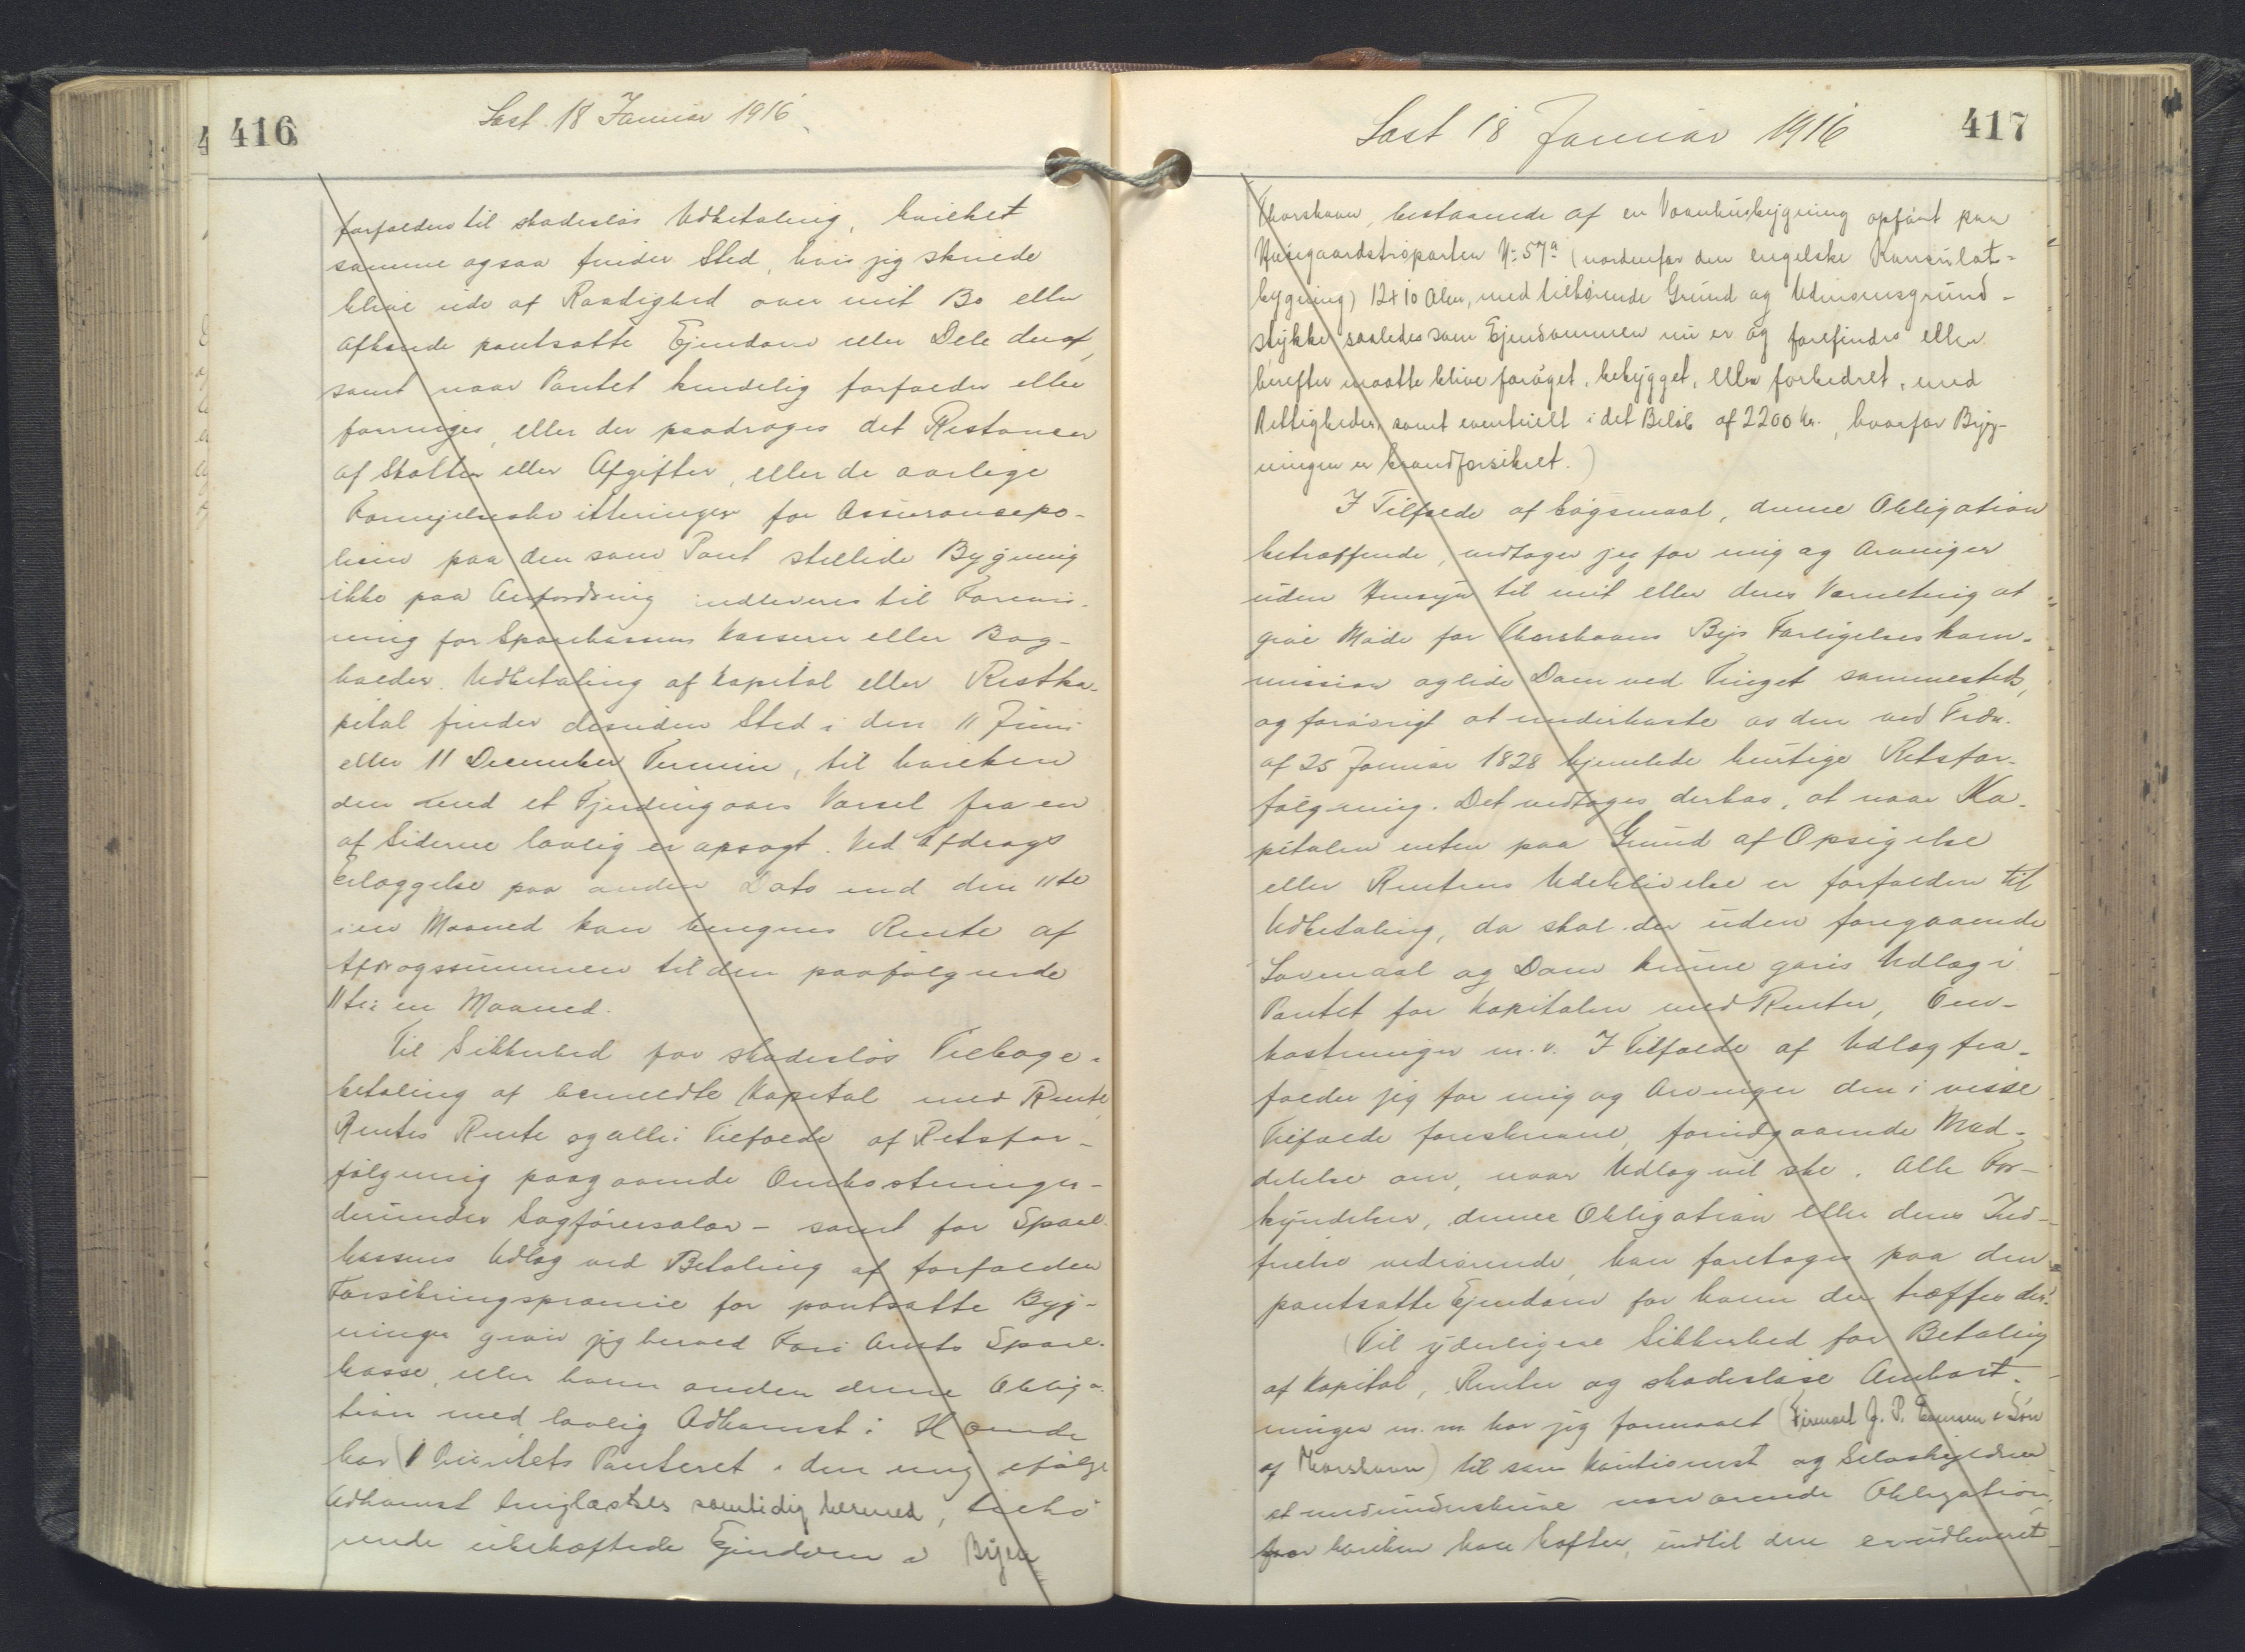 416
Læst 18 Januar 1916
forfalden til skadesløs Udbetaling, hvilket
samme ogsaa finder Sted, hvis jeg skulde
blive ude af Raadighed over mit Bo eller
afhænde pantsatte Ejendom eller Dele deraf,
samt naar Pantet kendelig forfalder eller
forringes, eller der paadrages det Restancer
af Skatter eller Afgifter, eller de aarlige
Fornyelseskvitteringer for Assurancepo-
licen paa den som Pant stillede Bygning
ikke paa Anfordring indleveres til Forevis-
ning for Sparekassens Kasserer eller Bog-
holder. Udbetaling af Kapital eller Restka-
pital finder desuden Sted i den 11 Juni
eller 11 December Termin, til hvilken
den med et Fjerdingaars Varsel fra en
af Siderne lovlig er opsagt. Ved Afdrags
Erlæggelse paa anden Dato end den 11te
i en Maaned kan beregnes Rente af
Afdragssummen til den paafølgende
11te i en Maaned.
Til Sikkerhed for skadesløs Tilbage-
betaling af bemeldte Kapital med Rente,
Rentes Rente og alle i Tilfælde af Retsfor-
følgning paagaaende Omkostninger -
derunder Sagførersalær - samt for Spare-
kassens Udlæg ved Betaling af forfalden
Forsikringspræmie for pantsatte Byg-
ninger giver jeg herved Færø Amts Spare-
kasse, eller hvem anden denne Obliga-
tion med lovlig Adkomst i Hænde
har (1 Prioritets Panteret i den mig ifølge
Adkomst tinglæstes samtidig hermed, tilhø-
rende ubehæftede Ejendom i Byen
Læst 18 Januar 1916
417
Thorshavn, bestaaende af en Vaanhusbygning opført paa
Husegaardstroparten No 57a (nordenfor den engelske Konsulat-
bygning) 12 x 10 Alen, med tilhørende Grund og Udenomsgrund-
stykke saaledes som Ejendommen nu er og forefindes eller
herefter maatte blive forøget, bebygget, eller forbedret, med
Rettigheder, samt eventuelt i det Beløb af 2200 Kr., hvorfor Byg-
ningen er brandforsikret.)
I Tilfælde af Søgsmaal, denne Obligation
betræffende, vedtager jeg for mig og Arvinger
uden Hensyn til mit eller deres Værneting at
give Møde for Thorshavns Bys Forligelseskom-
mission og lide Dom ved Tinget sammesteds,
og forøvrigt at underkaste os den ved Frdn.
af 25 Januar 1828 hjemlede hurtige Retsfor-
følgning. Det vedtages derhos, at naar Ka-
pitalen enten paa Grund af Opsigelse
eller Rentens Udeblivelse er forfalden til
Udbetaling, da skal der uden foregaaende
Lovmaal og Dom kunne gøres Udlæg i
Pantet for Kapitalen med Renter, Om-
kostninger m.v. I Tilfælde af Udlæg fra-
falder jeg for mig og Arvinger den i visse
Tilfælde foreskrevne, forudgaaende Med-
delelse om, naar Udlæg vil ske. Alle For-
kyndelser, denne Obligation eller dens Ind-
frielse vedrørende, kan foretages paa den
pantsatte Ejendom for hvem der træffes der.
(Til yderligere Sikkerhed for Betaling
af Kapital, Renter og skadesløse Omkost-
ninger m. m. har jeg formaaet (Firmaet J. P. Emmsen & Søn
af Thorshavn) til som Kautionist og Selvskyldner
at medunderskrive nærværende Obligation,
for hvilken han hæfter, indtil den er udleveret